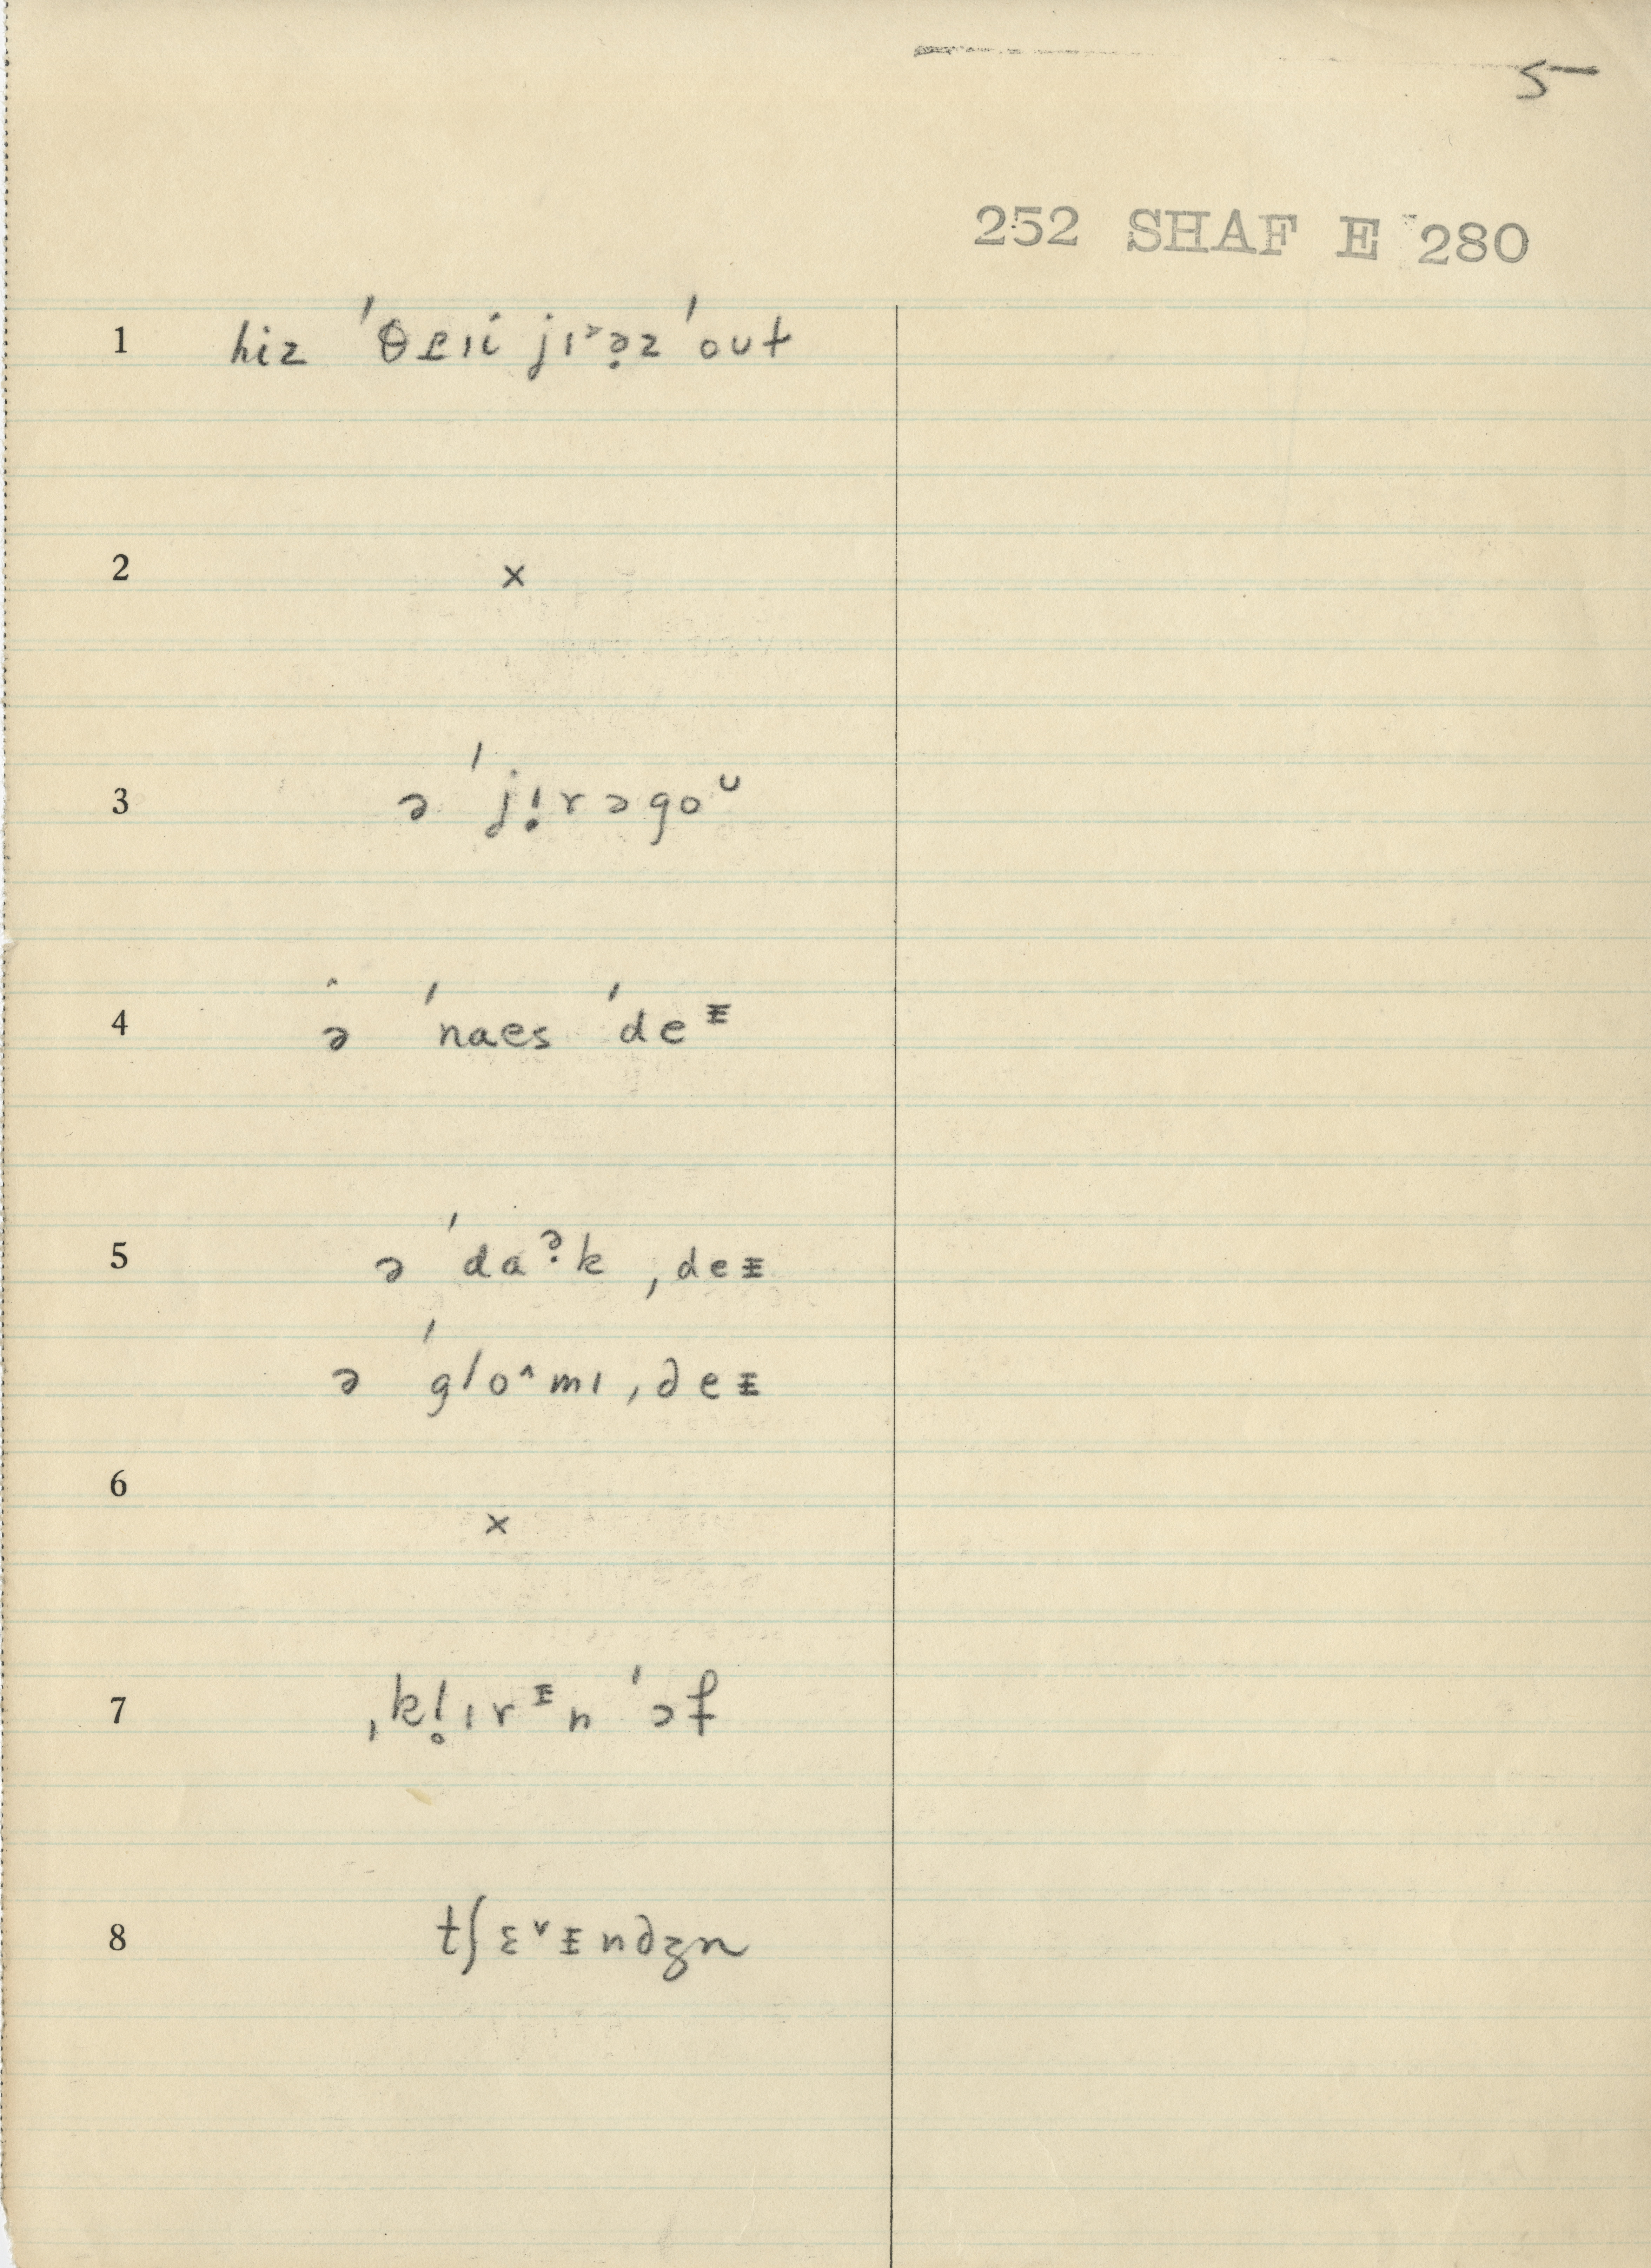 5
252 SHAF E 280
1 hiz ˈθɚɹi jɪ˃ə̣z ˈoʊt
2 ×
3 ə ˈjị!rəgoᶷ
4 ə ˈnaes ˈdeᵻ
5 ə ˈdaə̣k ˌdeᵻ
ə ˈglo^mɪ ˌdeᵻ
6 ×
7 ˌkl̥ɪrᵻn ˈɔf
8 tʃɛ˅ᵻndʒn